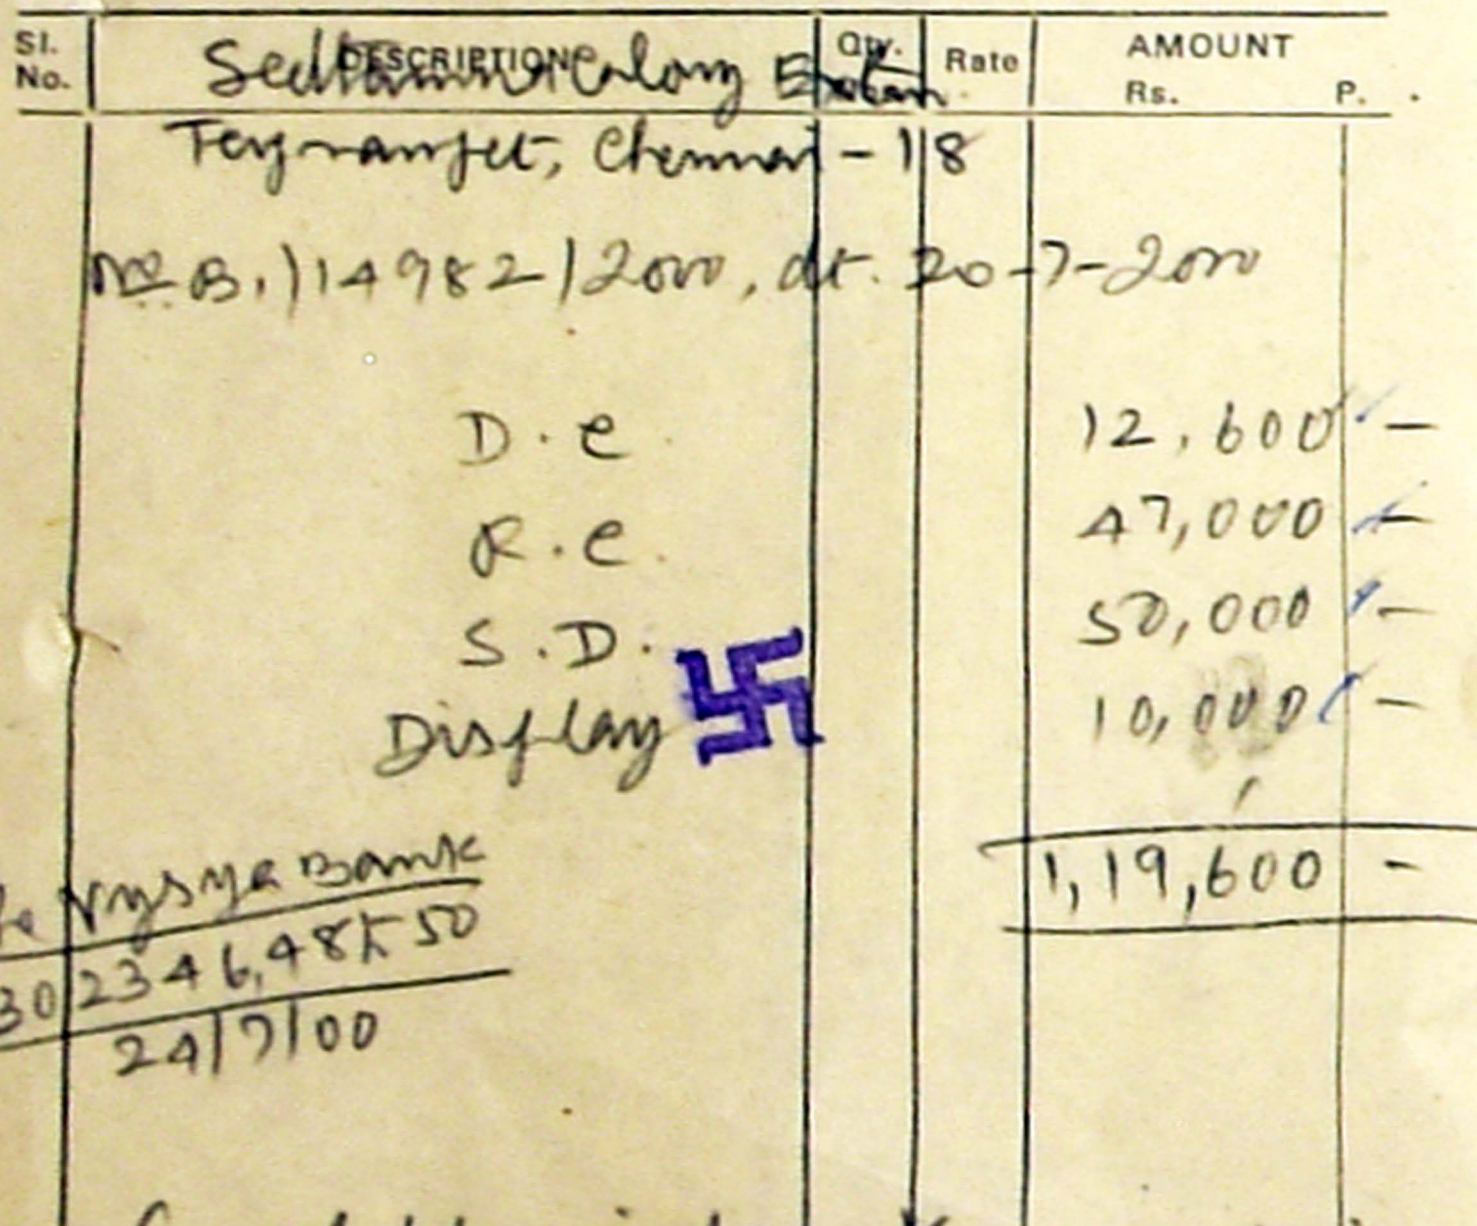 Sl. No. DESCRIPTION Qty. Rate AMOUNT Rs. P.
Seethammal Colony Extn
Teynampet, Chennai - 18
No. B1/14982/2000, dt. 20-7-2000
D.C. 12,600 -
R.C. 47,000 -
S.D. 50,000 -
Display 10,000 -
1,19,600 -
Vysya Bank
50
24/7/00